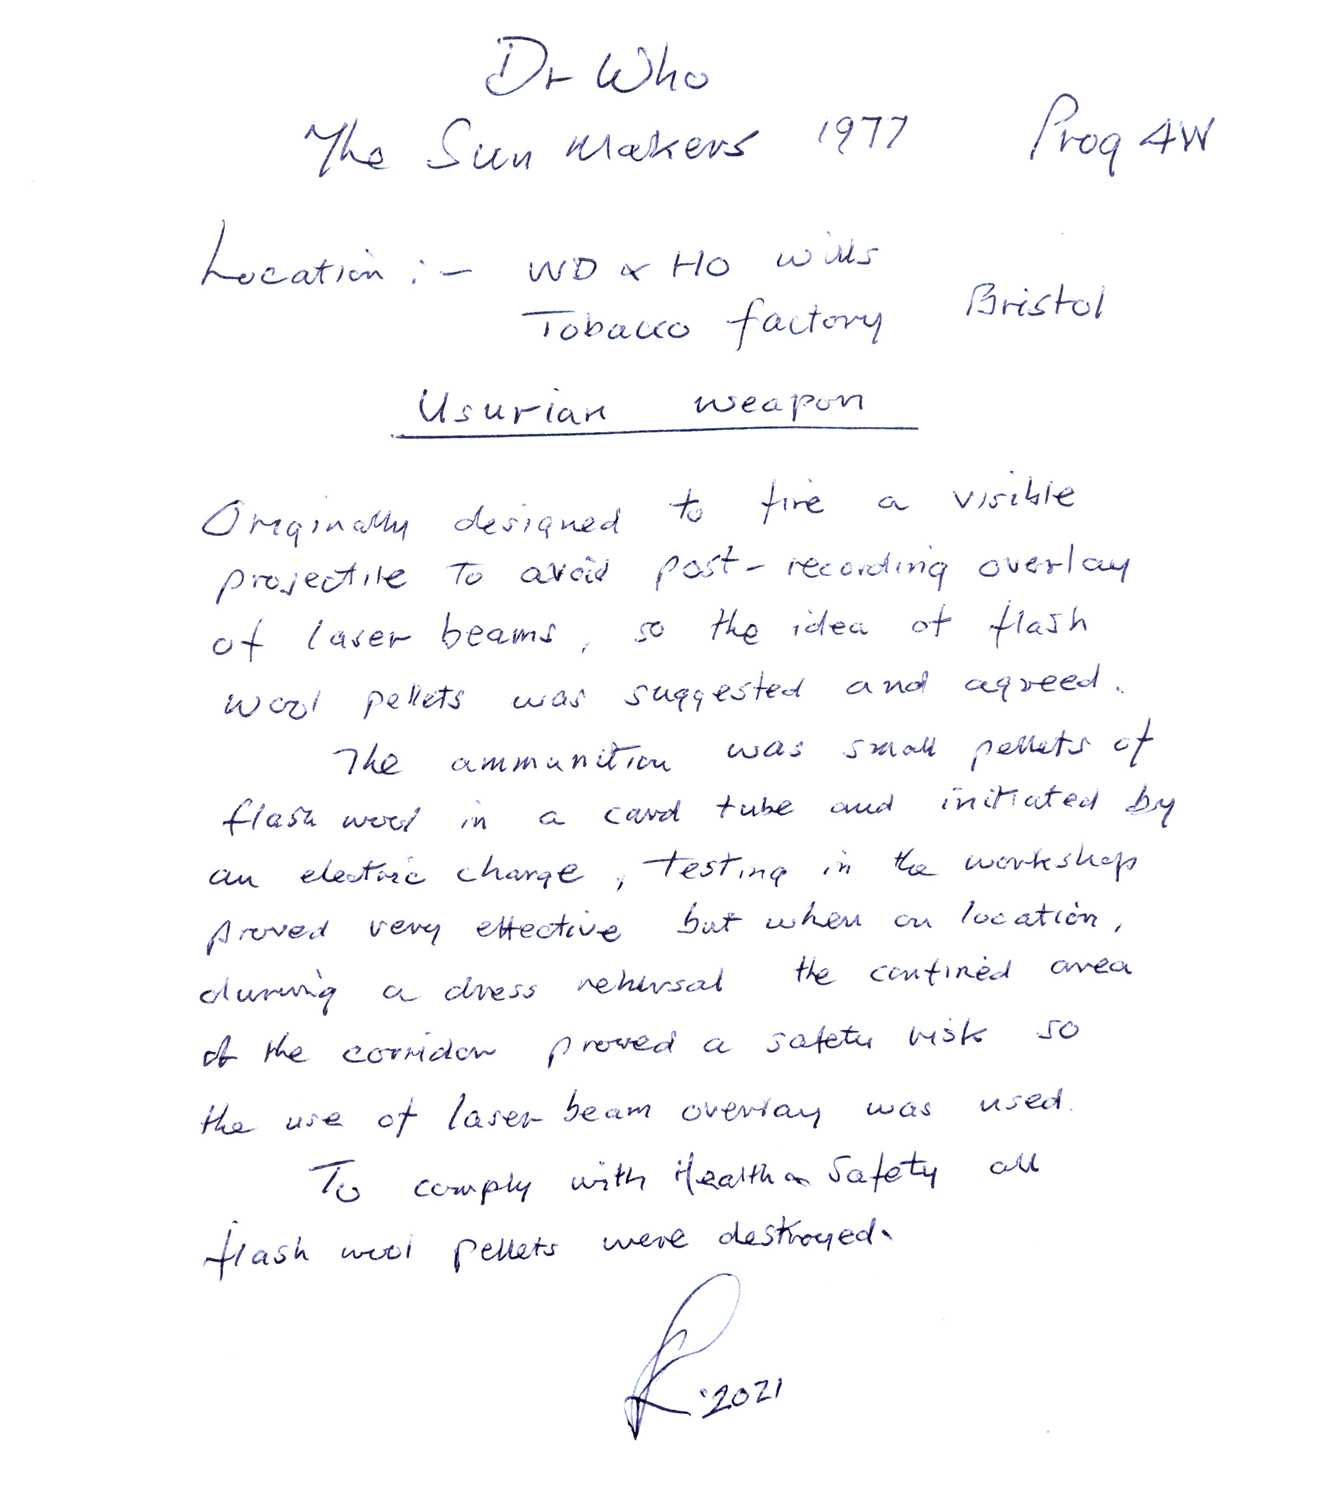 Dr Who
The Sun Makers 1977 Prog 4W
Location :- WD & HO Wills
Tobacco factory Bristol
Usurian weapon
Originally designed to fire a visible
projectile To avoid post-recording overlay
of laser beams, so the idea of flash
wool pellets was suggested and agreed.
The ammunition was small pellets of
flash wool in a card tube and initiated by
an electric charge, Testing in the workshop
proved very effective but when on location,
during a dress rehersal the confined area
of the corridor proved a safety risk so
the use of laser beam overlay was used.
To comply with Health & Safety all
flash wool pellets were destroyed.
2021